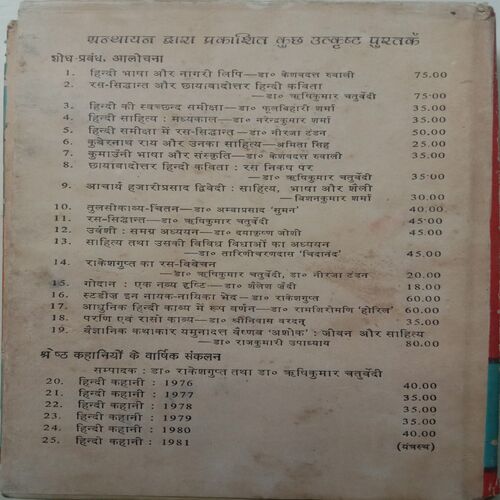 ग्रन्थायन द्वारा प्रकाशित कुछ उत्कृष्ट पुस्तकें
शोध-प्रबंध, आलोचना
1. हिन्दी भाषा और नागरी लिपि—डा० केशवदत्त रुवाली 75.00
2. रस-सिद्धान्त और छायावादोत्तर हिन्दी कविता
—डा० ऋषिकुमार चतुर्वेदी 75.00
3. हिन्दी की स्वच्छन्द समीक्षा—डा० फूलबिहारी शर्मा 35.00
4. हिन्दी साहित्य : मध्यकाल—डा० नरेन्द्रकुमार शर्मा 35.00
5. हिन्दी समीक्षा में रस-सिद्धान्त—डा० नीरजा टंडन 50.00
6. कुबेरनाथ राय और उनका साहित्य—अमिता सिंह 25.00
7. कुमाउँनी भाषा और संस्कृति—डा० केशवदत्त रुवाली 35.00
8. छायावादोत्तर हिन्दी कविता : रस निकष पर
—डा० ऋषिकुमार चतुर्वेदी 35.00
9. आचार्य हजारीप्रसाद द्विवेदी : साहित्य, भाषा और शैली
—विशनकुमार शर्मा 30.00
10. तुलसीकाव्य-चिंतन—डा० अम्बाप्रसाद 'सुमन' 40.00
11. रस-सिद्धान्त—डा० ऋषिकुमार चतुर्वेदी 45.00
12. उर्वशी : समग्र अध्ययन—डा० दयाकृष्ण जोशी 45.00
13. साहित्य तथा उसकी विविध विधाओं का अध्ययन
—डा० तारिणीचरणदास 'चिदानंद' 45.00
14. राकेशगुप्त का रस-विवेचन
—डा० ऋषिकुमार चतुर्वेदी, डा० नीरजा टंडन 20.00
15. गोदान : एक नव्य दृष्टि—डा० शैलेश जैदी 18.00
16. स्टडीज़ इन नायक-नायिका भेद—डा० राकेशगुप्त 60.00
17. आधुनिक हिन्दी काव्य में रूप वर्णन—डा० रामशिरोमणि 'होरिल' 60.00
18. परणि एवं रासो काव्य—डा० श्रीनिवास वरदन् 35.00
19. वैज्ञानिक कथाकार यमुनादत्त वैष्णव 'अशोक' : जीवन और साहित्य
—डा० राजकुमारी उपाध्याय 80.00
श्रेष्ठ कहानियों के वार्षिक संकलन
सम्पादक : डा० राकेशगुप्त तथा डा० ऋषिकुमार चतुर्वेदी
20. हिन्दी कहानी : 1976 40.00
21. हिन्दी कहानी : 1977 35.00
22. हिन्दी कहानी : 1978 35.00
23. हिन्दी कहानी : 1979 35.00
24. हिन्दी कहानी : 1980 40.00
25. हिन्दी कहानी : 1981 (यंत्रस्थ)